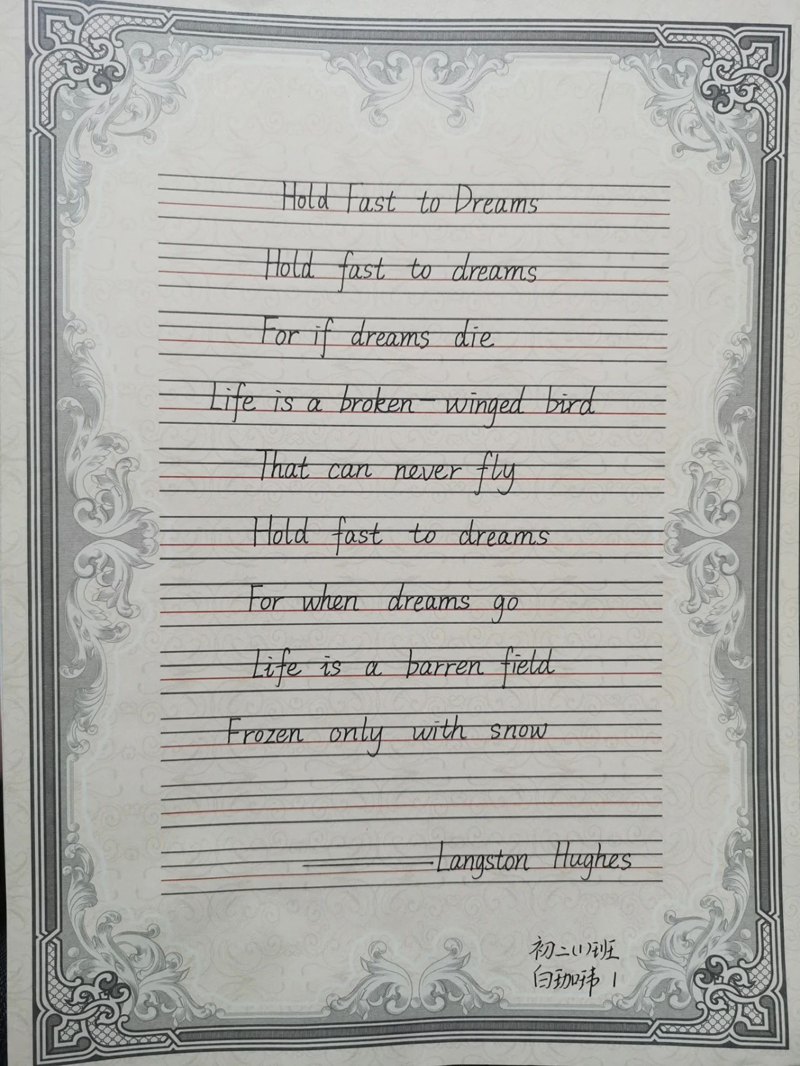 Hold Fast to Dreams
Hold fast to dreams
For if dreams die
Life is a broken-winged bird
That can never fly
Hold fast to dreams
For when dreams go
Life is a barren field
Frozen only with snow
——Langston Hughes
初二(1)班
白珈玮 1